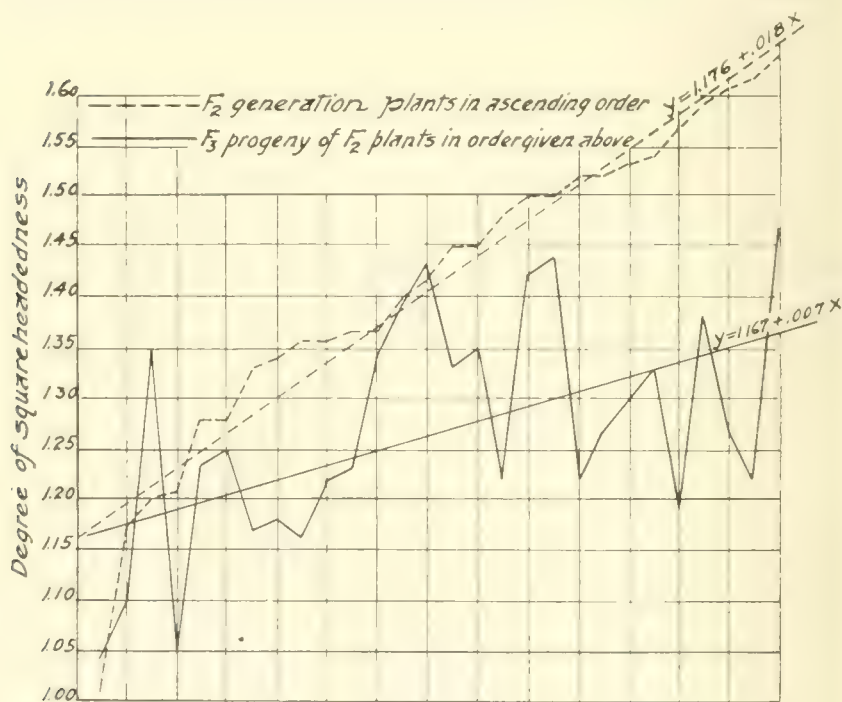 y=1.176 +.018 X
F2 generation plants in ascending order
F3 progeny of F2 plants in order given above
Degree of squareheadedness
1.60
1.55
1.50
1.45
1.40
1.35
1.30
1.25
1.20
1.15
1.10
1.05
1.00
y=1.167+.007 X